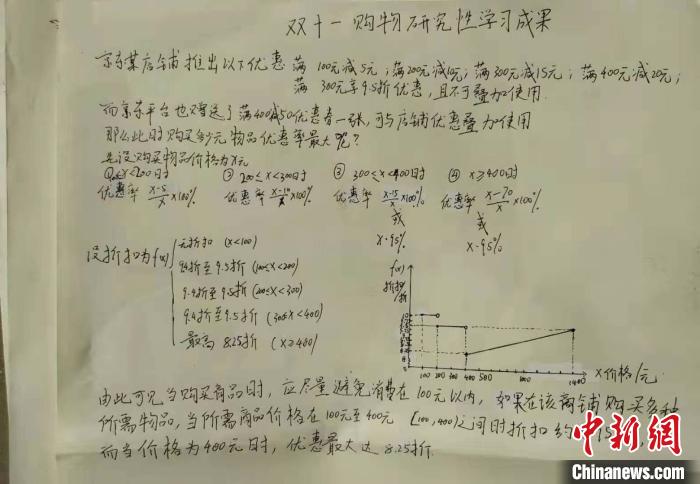 双十一购物研究性学习成果
京东某店铺推出以下优惠 满100元减5元；满200元减10元；满300元减15元；满400元减20元；
满300元享9.5折优惠，且不可叠加使用.
而京东平台也赠送了满400减50优惠卷一张，可与店铺优惠叠加使用
那么此时购买多少元物品优惠率最大呢？
先设购买物品价格为x元
①100≤x<200时 ② 200≤x<300时 ③ 300≤x<400时 ④ x≥400时
优惠率 x-5/x ×100% 优惠率 x-10/x ×100% 优惠率 x-15/x ×100% 优惠率 x-70/x ×100%
或 或
x·95% x·95%
设折扣为f(x)
无折扣 (x<100)
9.4折至9.5折 (100≤x<200)
9.4折至9.5折 (200≤x<300)
9.4折至9.5折 (300≤x<400)
最高 8.25折 (x≥400)
f(x)
折扣/折
100 200 300 400 500 1400
x价格/元
由此可见当购买商品时，应尽量避免消费在100元以内，如果在该商铺购买多种
所需物品，当所需商品价格在100元至400元 [100,400)之间时折扣约
而当价格为400元时，优惠最大达 8.25折.
中新网
Chinanews.com